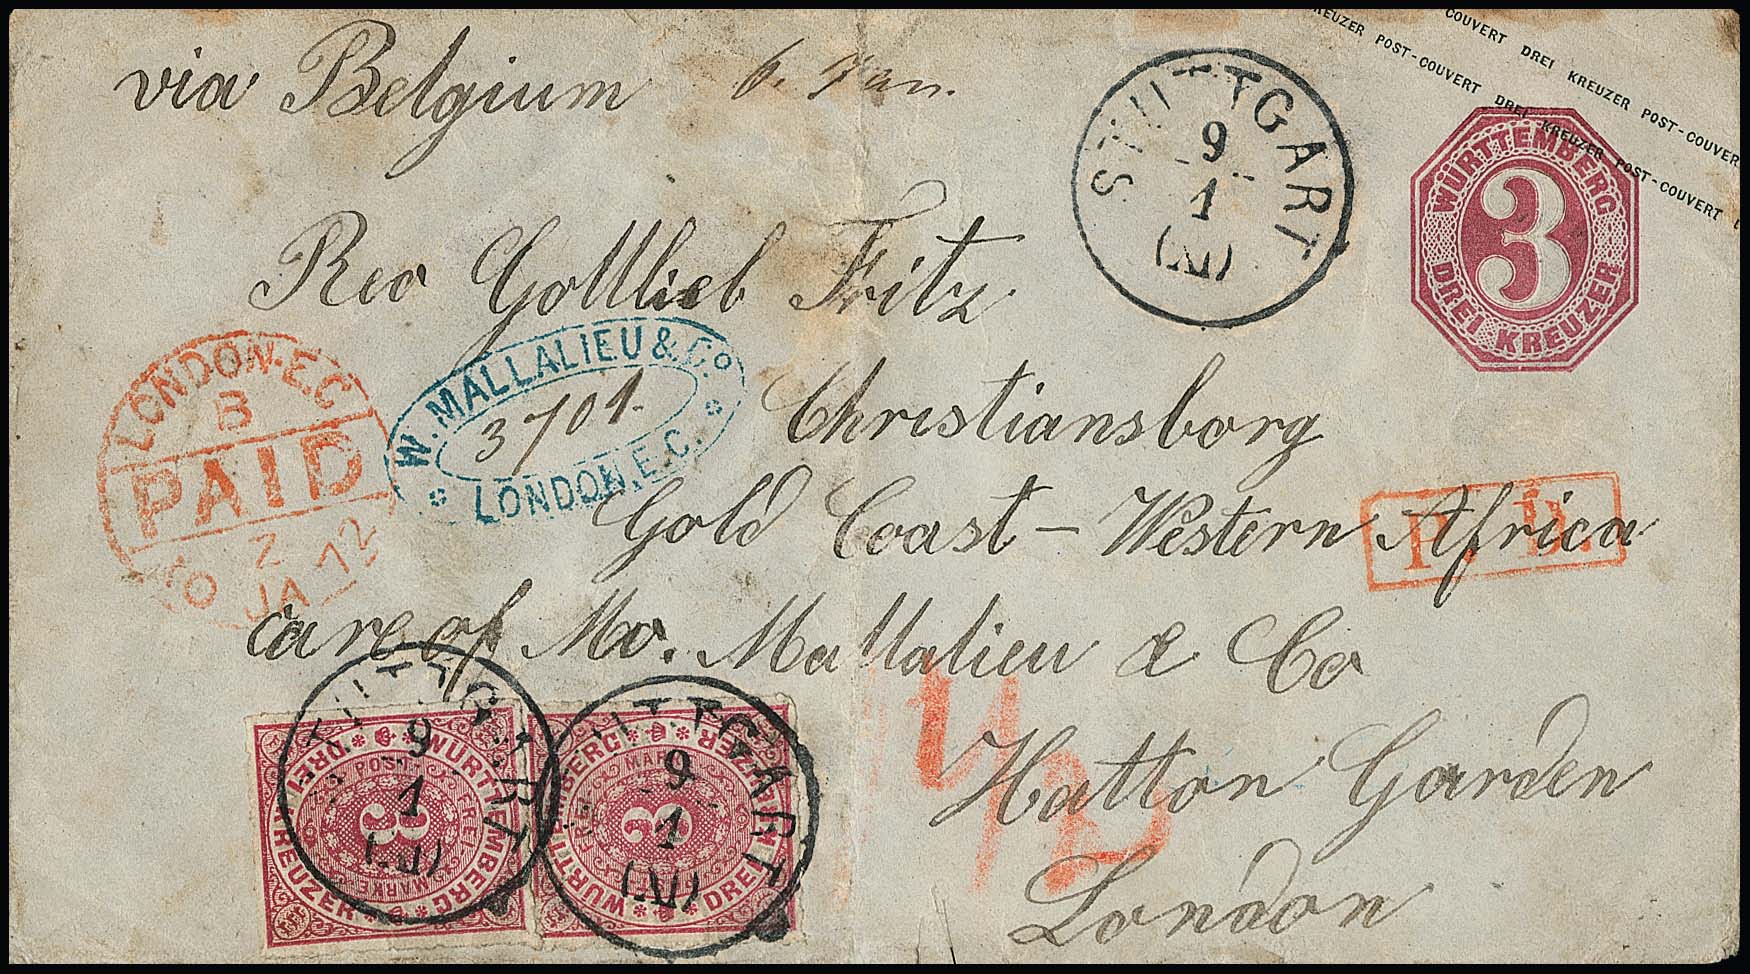 via Belgium 6. Jan.
KREUZER POST-COUVERT DREI KREUZER POST-COUVERT
COUVERT DREI KREUZER POST-COUVERT
STUTTGART
9
1
WÜRTTEMBERG
3
DREI KREUZER
Rev Gottlieb Fritz
LONDON.E.C
B
PAID
10 Z
JA 72
W. MALLALIEU & Co.
3701.
LONDON.E.C.
Christiansborg
Gold Coast - Western Africa
P. D.
care of Mr. Mallalieu & Co
Hatton Garden
London
STUTTGART
9
1
WÜRTTEMBERG
POST FREI MARKE
3
DREI KREUZER
STUTTGART
9
1
WÜRTTEMBERG
FREI MARKE
3
DREI KREUZER